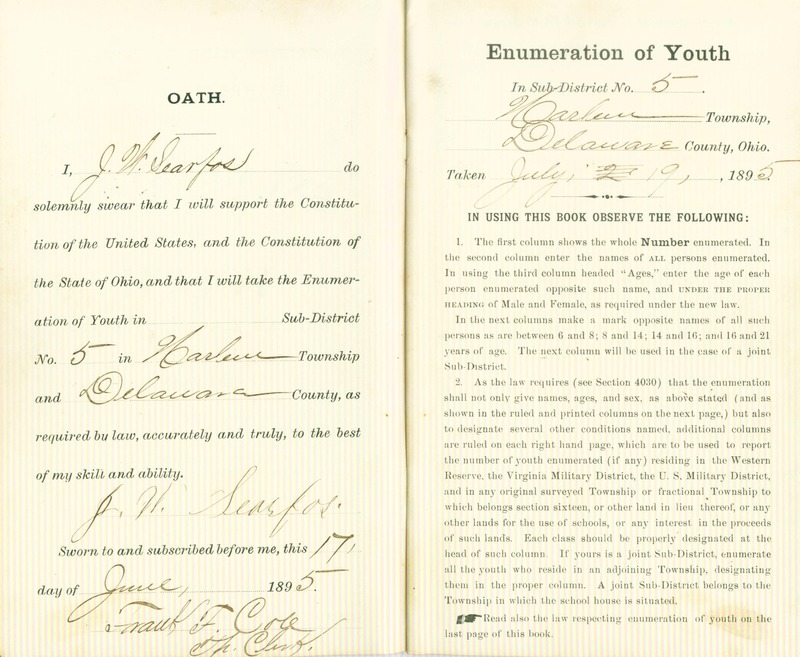 OATH.
I, J. W. Searfos do
solemnly swear that I will support the Constitu-
tion of the United States, and the Constitution of
the State of Ohio, and that I will take the Enumer-
ation of Youth in Sub-District
No. 5 in Harlem Township
and Delaware County, as
required by law, accurately and truly, to the best
of my skill and ability.
J. W. Searfos.
Sworn to and subscribed before me, this 17,
day of June, 1895.
Frank F. Cole
Th. Clerk.
Enumeration of Youth
In Sub-District No. 5.
Harlem Township,
Delaware County, Ohio.
Taken July, 19, , 1895
IN USING THIS BOOK OBSERVE THE FOLLOWING:
1. The first column shows the whole Number enumerated. In
the second column enter the names of ALL persons enumerated.
In using the third column headed "Ages," enter the age of each
person enumerated opposite such name, and UNDER THE PROPER
HEADING of Male and Female, as required under the new law.
In the next columns make a mark opposite names of all such
persons as are between 6 and 8; 8 and 14; 14 and 16; and 16 and 21
years of age. The next column will be used in the case of a joint
Sub-District.
2. As the law requires (see Section 4030) that the enumeration
shall not only give names, ages, and sex, as above stated (and as
shown in the ruled and printed columns on the next page,) but also
to designate several other conditions named, additional columns
are ruled on each right hand page, which are to be used to report
the number of youth enumerated (if any) residing in the Western
Reserve, the Virginia Military District, the U. S. Military District,
and in any original surveyed Township or fractional Township to
which belongs section sixteen, or other land in lieu thereof, or any
other lands for the use of schools, or any interest in the proceeds
of such lands. Each class should be properly designated at the
head of such column. If yours is a joint Sub-District, enumerate
all the youth who reside in an adjoining Township, designating
them in the proper column. A joint Sub-District belongs to the
Township in which the school house is situated.
Read also the law respecting enumeration of youth on the
last page of this book.